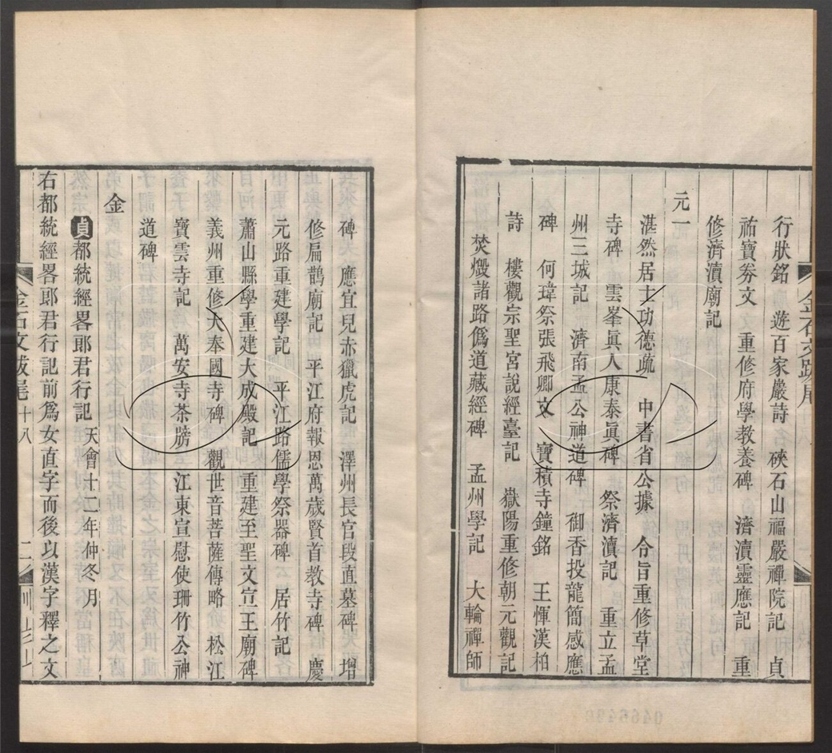 行狀銘　遊百家巖詩　硤石山福嚴禪院記　貞
祐寶劵文　重修府學教養碑　濟瀆靈應記　重
修濟瀆廟記
元一
湛然居士功德疏　中書省公據　令旨重修草堂
寺碑　雲峯眞人康泰眞碑　祭濟瀆記　重立孟
州三城記　濟南孟公神道碑　御香投龍簡感應
碑　何瑋祭張飛卿文　寶積寺鐘銘　王惲漢柏
詩　樓觀宗聖宮說經臺記　嶽陽重修朝元觀記
焚燬諸路僞道藏經碑　孟州學記　大輪禪師
碑　應宜兒赤獵虎記　澤州長官段直墓碑　增
修扁鵲廟記　平江府報恩萬歲賢首教寺碑　慶
元路重建學記　平江路儒學祭器碑　居竹記
蕭山縣學重建大成殿記　重建至聖文宣王廟碑
義州重修大奉國寺碑　觀世音菩薩傳略　松江
寶雲寺記　萬安寺茶牓　江東宣慰使珊竹公神
道碑
金
貞都統經畧郎君行記　天會十二年仲冬月
右都統經畧郎君行記前爲女直字而後以漢字釋之文
金石文跋尾十八
二